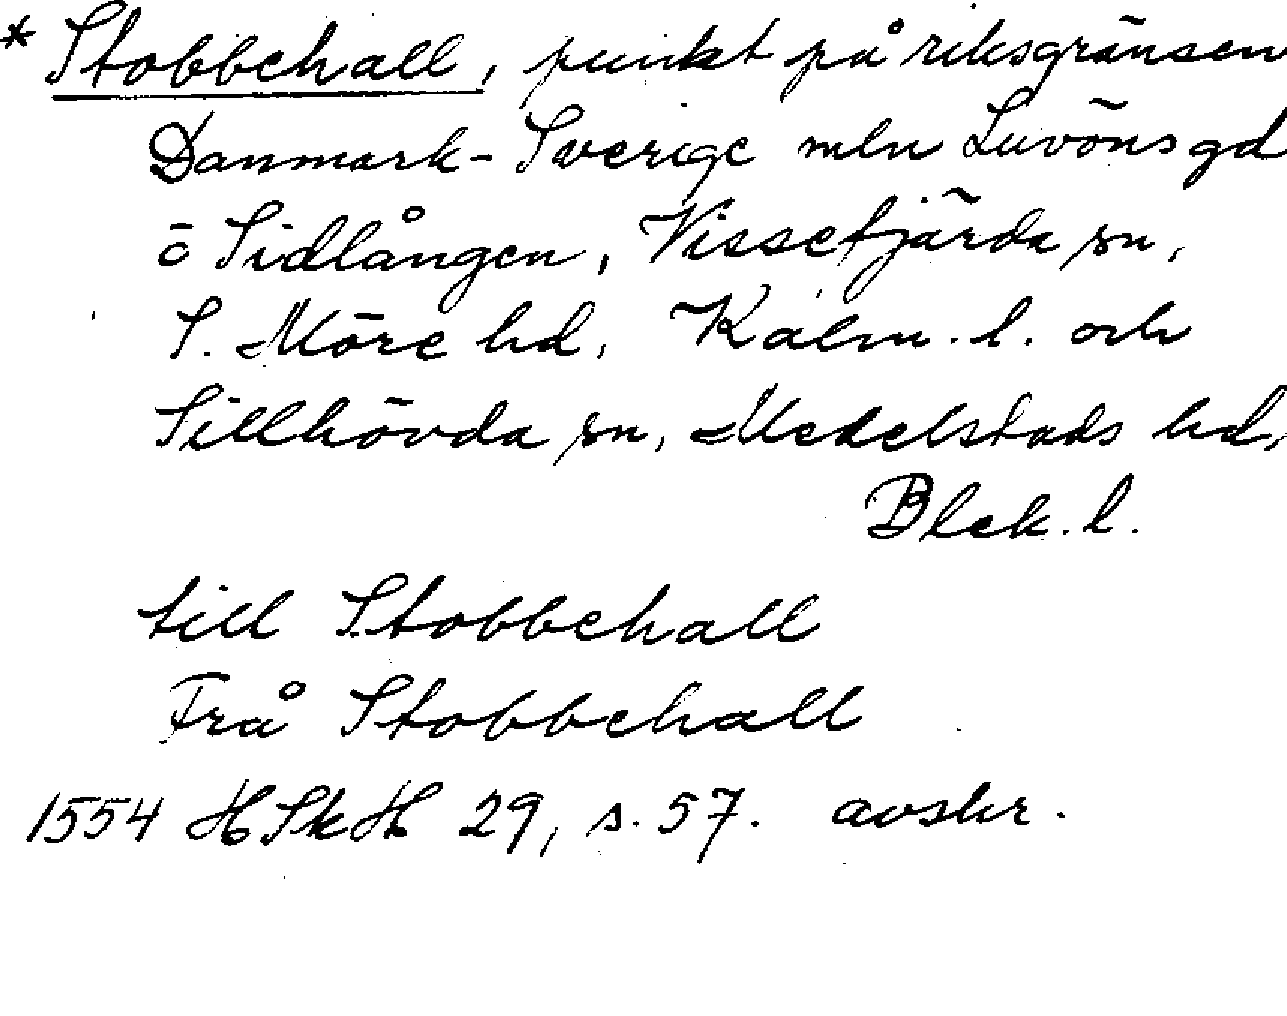 * Stobbehall, punkt på riksgränsen
Danmark-Sverige mln Luvönsgd
ö Sidlången, Vissefjärda sn,
S. Möre hd, Kalm. l. och
Sillhövda sn, Medelstads hd,
Blek. l.
till Stobbehall
Frå Stobbehall
1554 HSkH 29, s. 57. avskr.